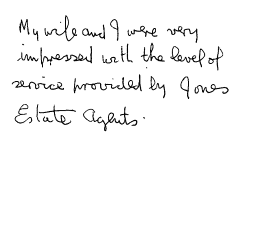 My wife and I were very
impressed with the level of
service provided by Jones
Estate Agents.